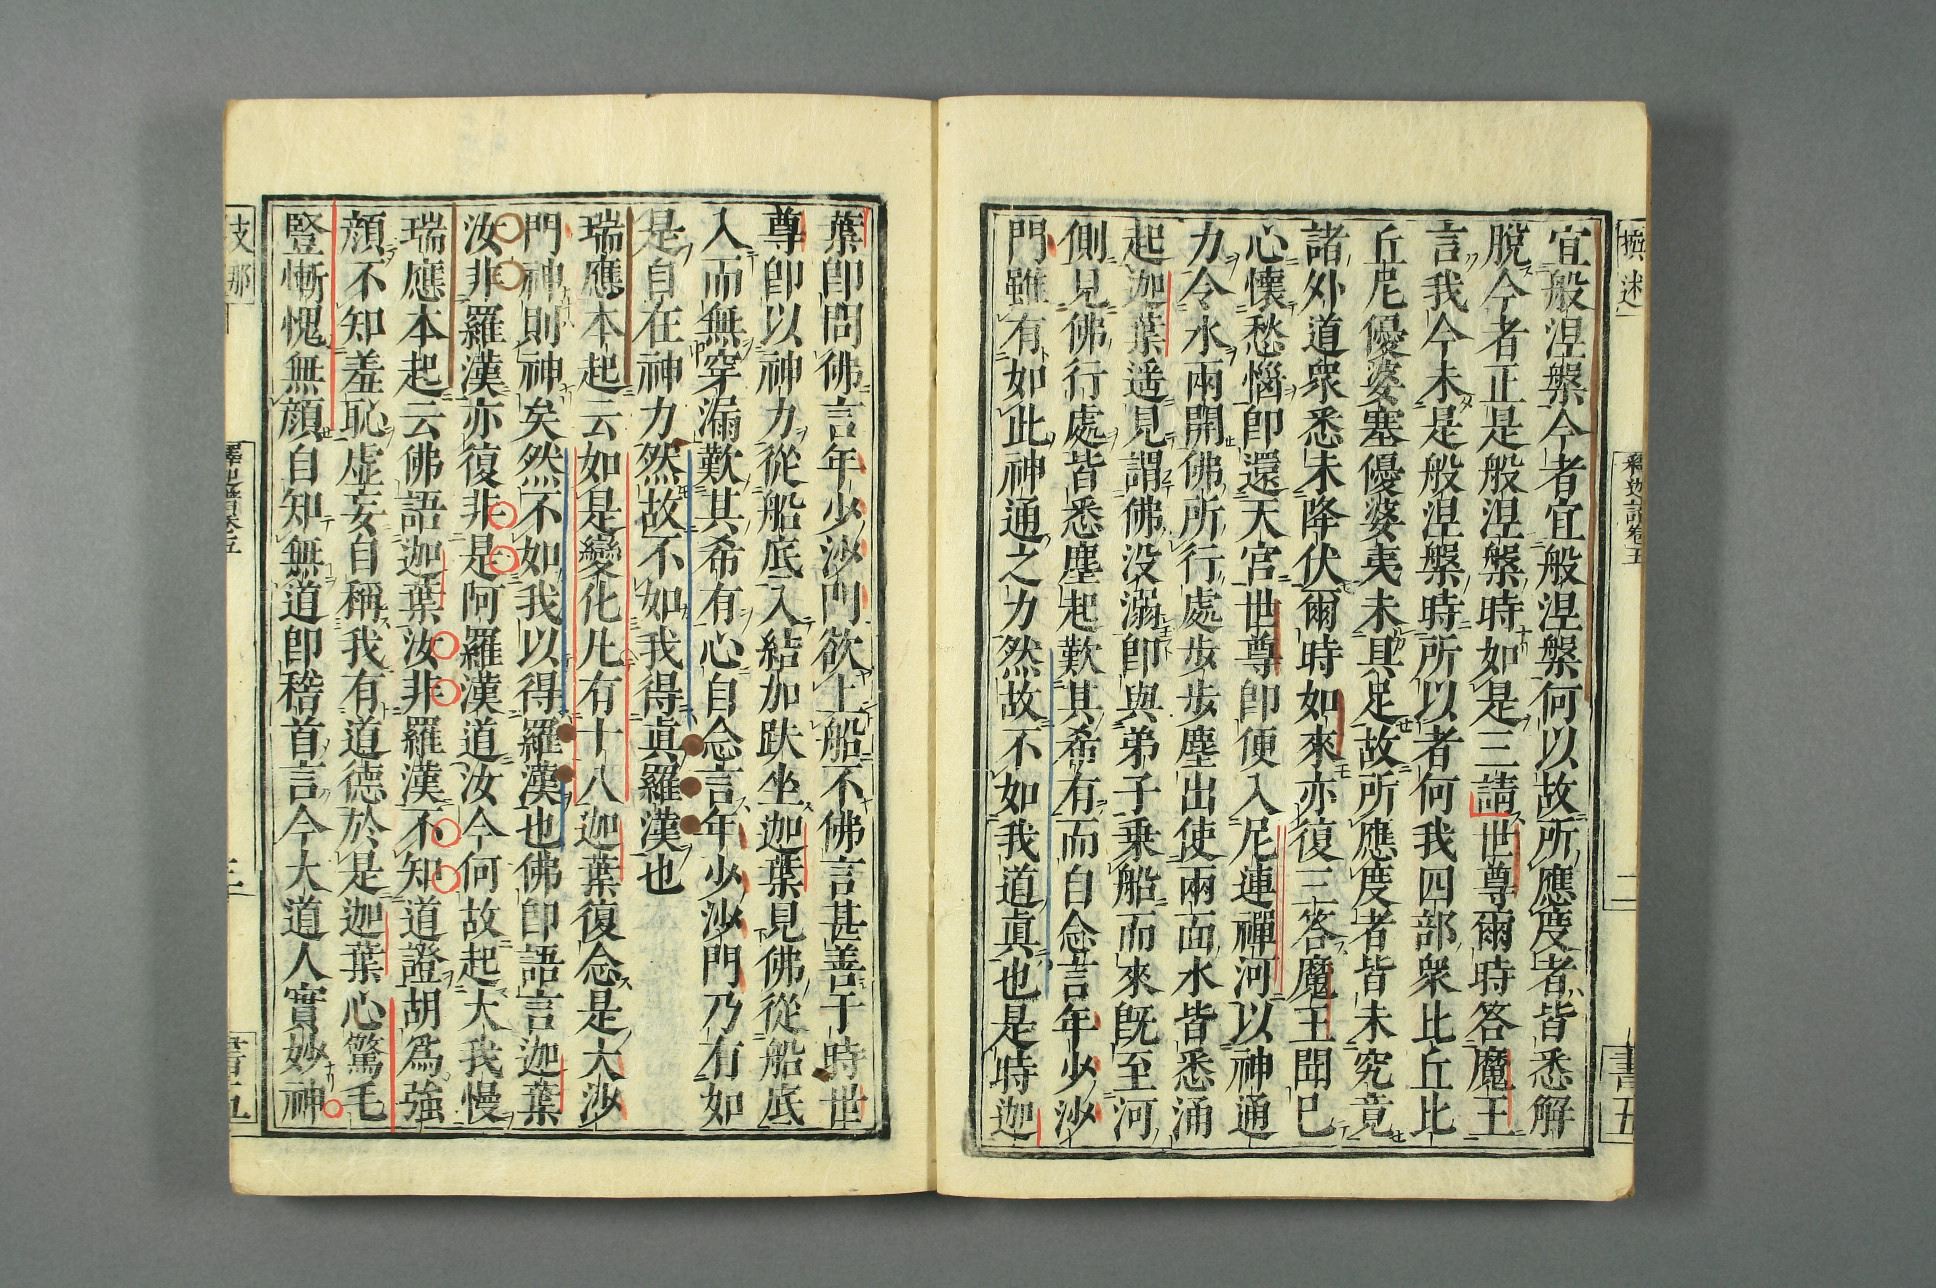 宜般涅槃今者宜般涅槃何以故所應度者皆悉解
脫今者正是般涅槃時如是三請世尊爾時答魔王
言我今未是般涅槃時所以者何我四部衆比丘比
丘尼優婆塞優婆夷未具足故所應度者皆未究竟
諸外道衆悉未降伏爾時如來亦復三答魔王聞已
心懷愁惱卽還天宮世尊卽便入尼連禪河以神通
力令水兩開佛所行處步步塵出使兩面水皆悉涌
起迦葉遥見謂佛没溺卽與弟子乘船而來旣至河
側見佛行處皆悉塵起歎其希有而自念言年少沙
門雖有如此神通之力然故不如我道眞也是時迦
葉卽問佛言年少沙門欲上船不佛言甚善于時世
尊卽以神力從船底入結加趺坐迦葉見佛從船底
入而無穿漏歎其希有心自念言年少沙門乃有如
是自在神力然故不如我得眞羅漢也
瑞應本起云如是變化凡有十八迦葉復念是大沙
門神則神矣然不如我以得羅漢也佛卽語言迦葉
汝非羅漢亦復非是阿羅漢道汝今何故起大我慢
瑞應本起云佛語迦葉汝非羅漢不知道證胡爲強
顔不知羞恥虛妄自稱我有道德於是迦葉心驚毛
豎慚愧無顔自知無道卽稽首言今大道人實妙神
支那
書五